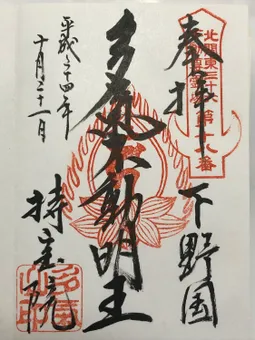 奉拝
北関東三十六
不動尊霊場第十八番
下野国
多気不動明王
平成二十四年
十月二十一日
持宝院